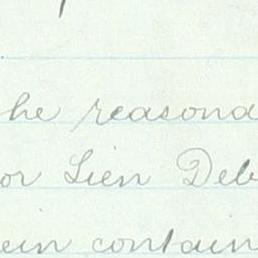 he reasona
or Lien Deb
ein contain